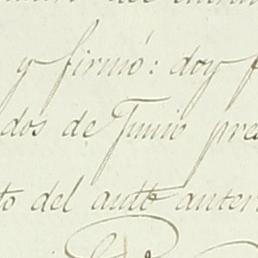 y firmó: doy f
dos de Junio pre
to del autto anter